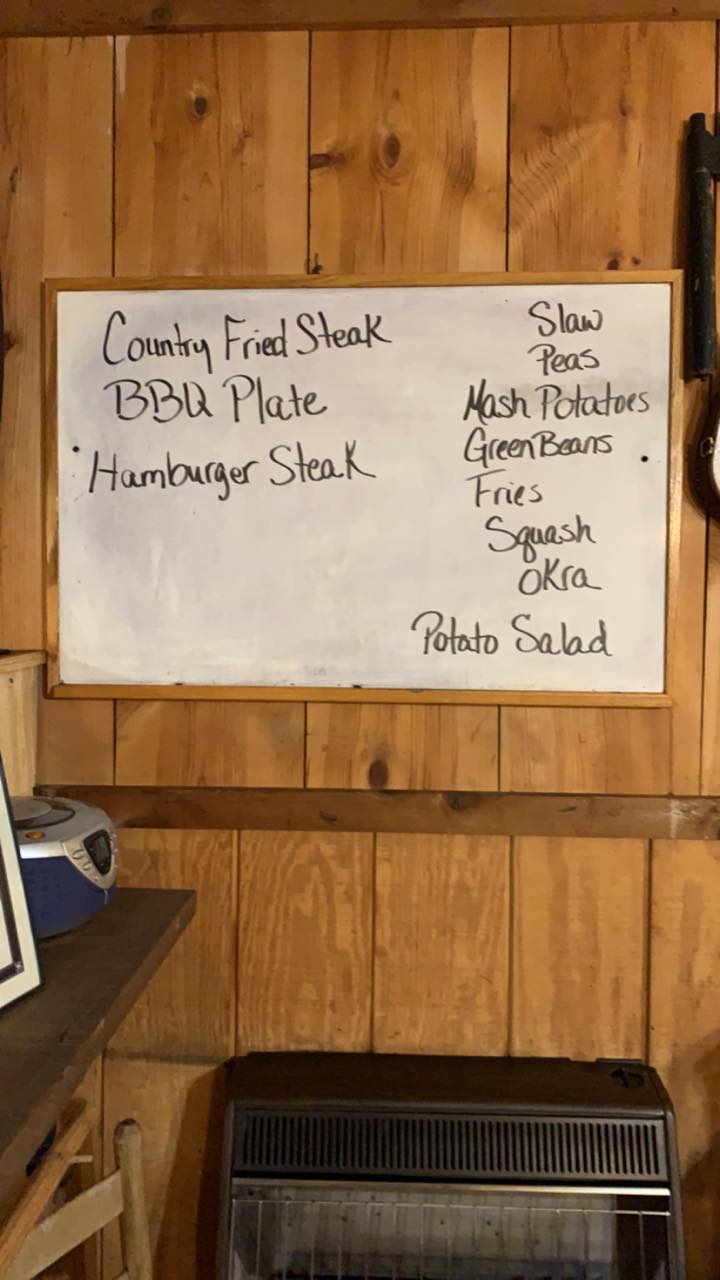 Country Fried Steak
BBQ Plate
Hamburger Steak
Slaw
Peas
Mash Potatoes
Green Beans
Fries
Squash
Okra
Potato Salad